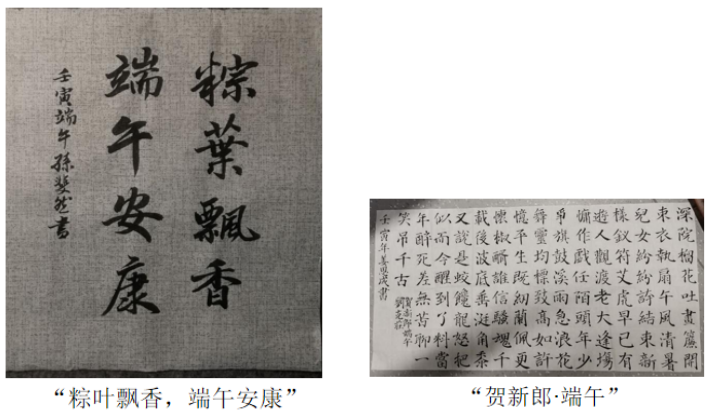 粽葉飄香
端午安康
壬寅端午孫斐然書
深院榴花吐畫簾開
束衣紈扇午風清暑
兒女紛紛誇結束新
樣釵符艾虎早已有
遊人觀渡老大逢場
慵作戲任陌頭年少
爭旗鼓溪雨急浪花
舞靈均標致高如許
憶平生既紉蘭佩更
懷椒醑誰信騷魂千
載後波底垂涎角黍
又説是蛟饞龍怒把
似而今醒到了料當
年醉死差無苦聊一
笑吊千古
賀新郎端午
劉克莊
壬寅年姜思成書
“粽叶飘香，端午安康”
“贺新郎·端午”